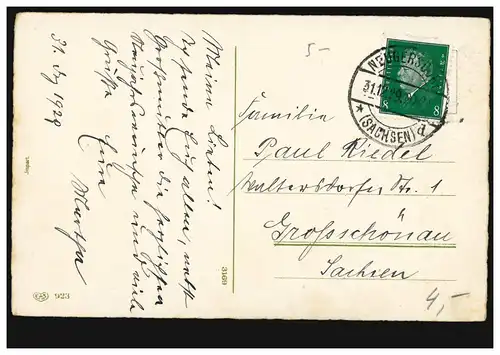 31. Dez 1928
Meine Lieben!
Ich sende Euch allen, nebst
Großmutter die herzlichsten
Neujahrswünsche und viele
Grüße Eure
Martha
Import.
923
3169
5-
NEUGERSDORF
31.12.
* (SACHSEN) d
8 8
Familie
Paul Riedel
Waltersdorfer Str. 1
Großschönau
Sachsen
4,-